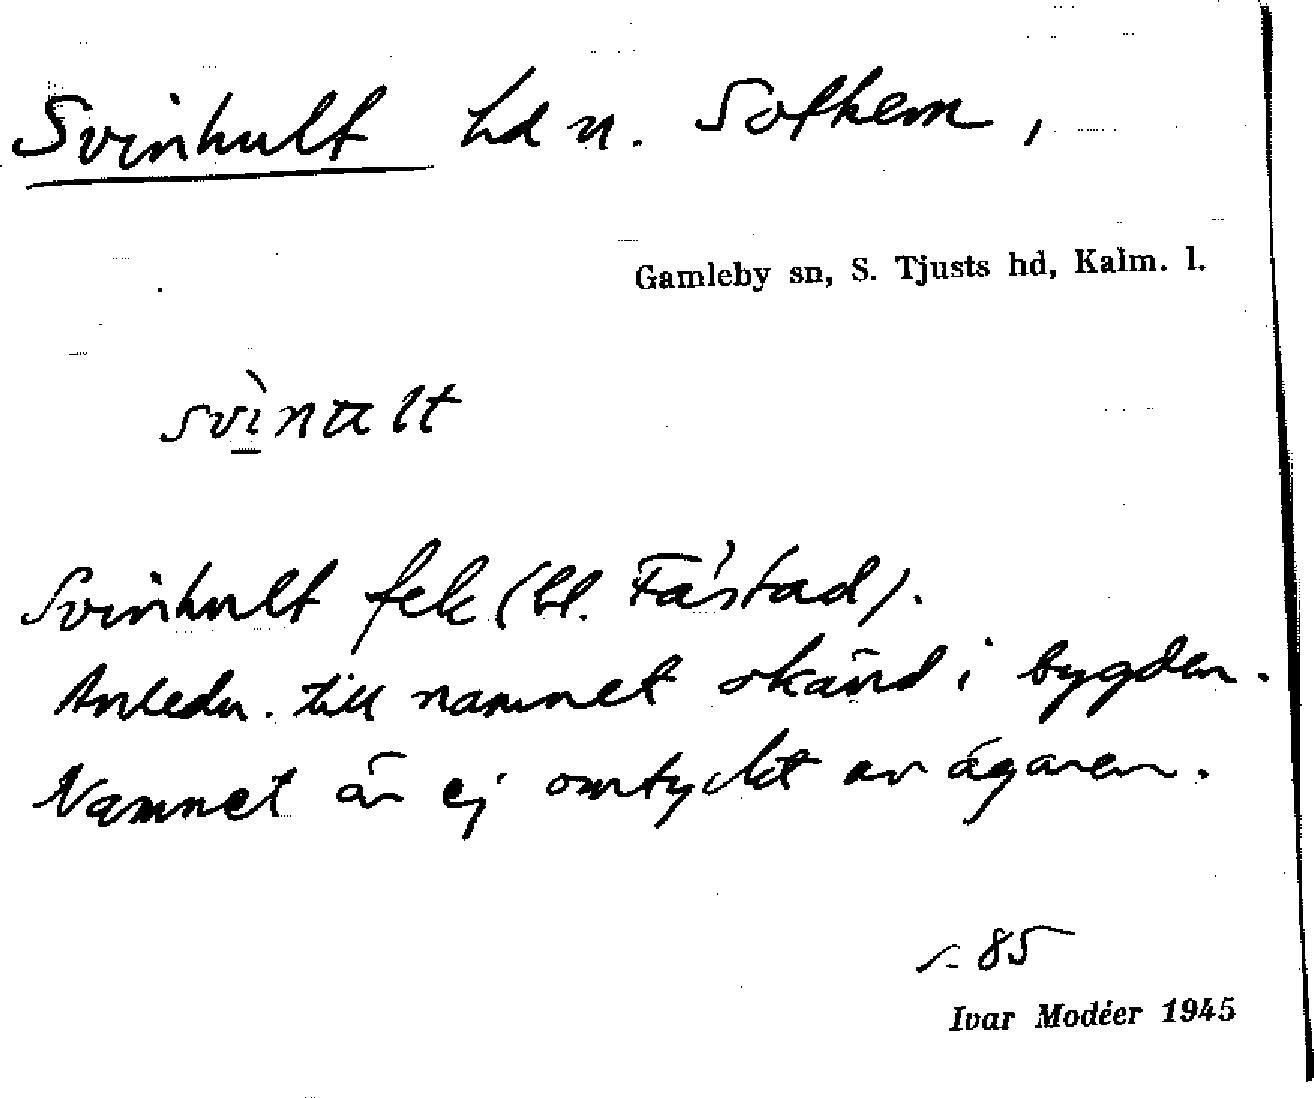 Svinhult hd u. Sothem,
Gamleby sn, S. Tjusts hd, Kalm. l.
svìnult
Svinhult fek (bl. Fåstad).
Anledn. till namnet okänd i bygden.
Namnet är ej omtyckt av ägaren.
s. 85
Ivar Modéer 1945